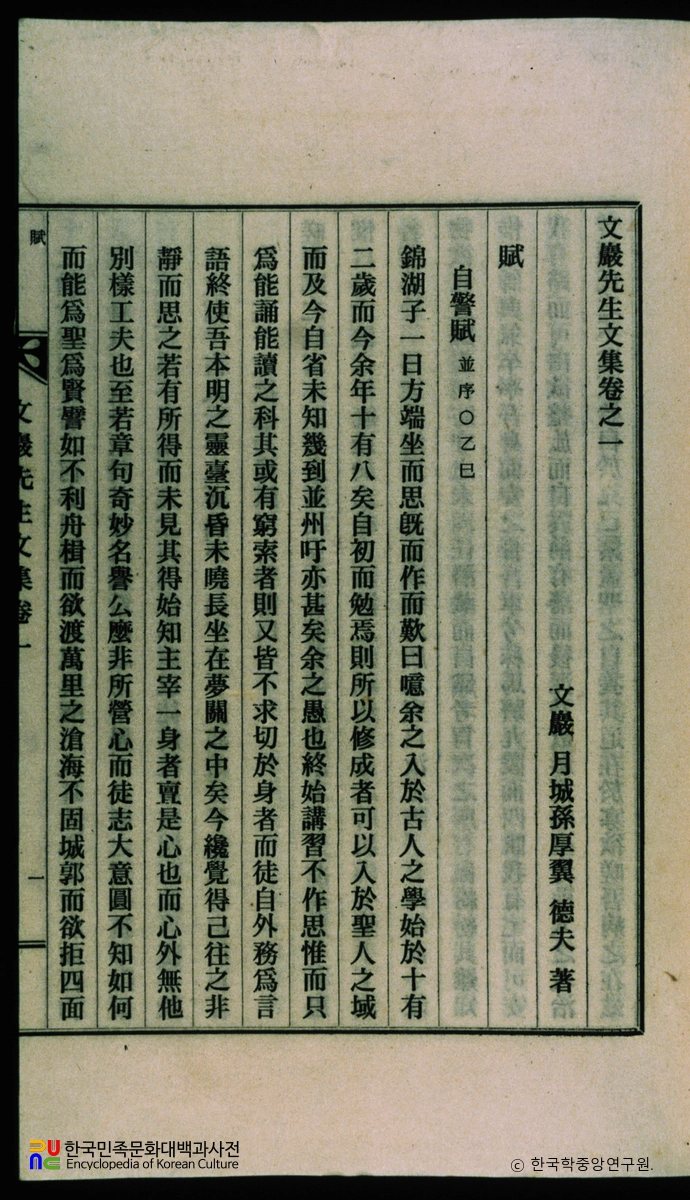 文巖先生文集卷之一
文巖 月城孫厚翼 德夫 著
賦
自警賦 並序○乙巳
錦湖子一日方端坐而思旣而作而歎曰噫余之入於古人之學始於十有
二歲而今余年十有八矣自初而勉焉則所以修成者可以入於聖人之域
而及今自省未知幾到並州吁亦甚矣余之愚也終始講習不作思惟而只
爲能誦能讀之科其或有窮索者則又皆不求切於身者而徒自外務爲言
語終使吾本明之靈臺沉昏未曉長坐在夢關之中矣今纔覺得己往之非
靜而思之若有所得而未見其得始知主宰一身者亶是心也而心外無他
別樣工夫也至若章句奇妙名譽公麼非所營心而徒志大意圓不知如何
而能爲聖爲賢譬如不利舟楫而欲渡萬里之滄海不固城郭而欲拒四面
賦
文巖先生文集卷一
一
한국민족문화대백과사전
Encyclopedia of Korean Culture
© 한국학중앙연구원.